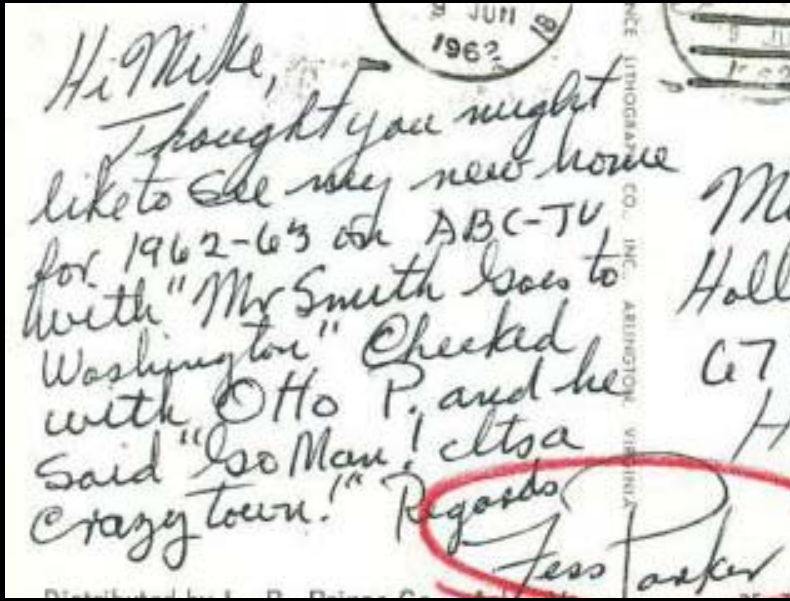 JUN
196
Hi Mike,
Thought you might
like to See my new home
for 1962-63 on ABC-TV
with "Mr Smith Goes to
Washington" Checked
with Otto P. and he
Said "Go Man! Its a
Crazy town!" Regards
Fess Parker
NCE LITHOGRAPH CO., INC., ARLINGTON, VIRGINIA
M
Holl
67
H
Distributed by L. B. Prince Co.